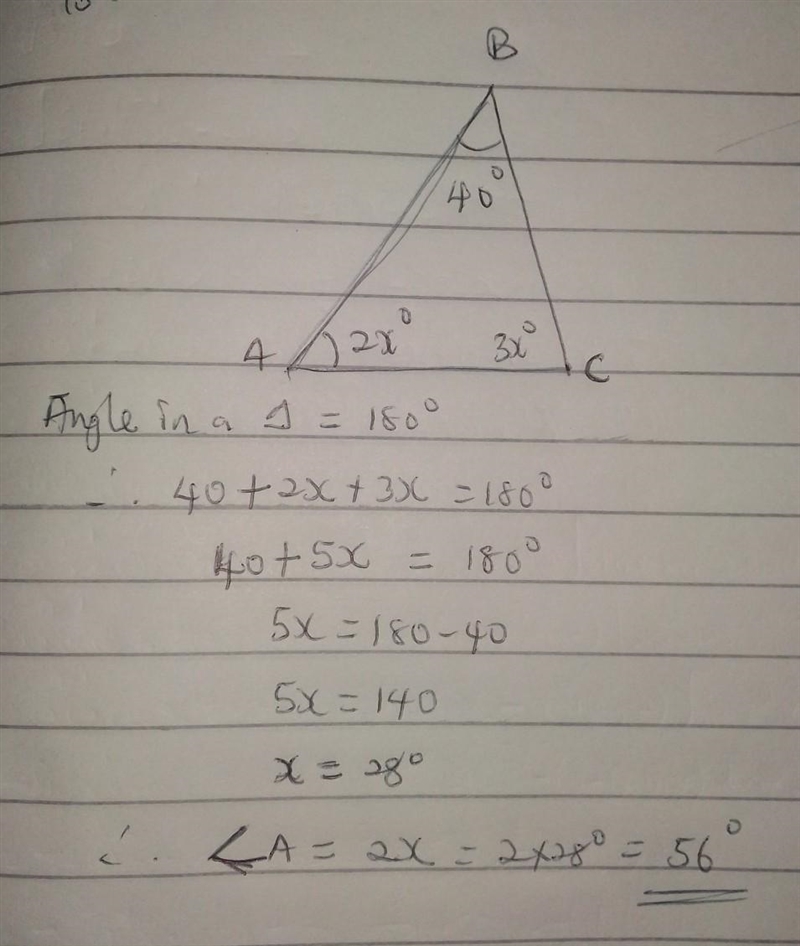 B
40°
A 2x° 3x° C
Angle in a △ = 180°
∴ 40 + 2x + 3x = 180°
40 + 5x = 180°
5x = 180 - 40
5x = 140
x = 28°
∴ <A = 2x = 2×28° = 56°